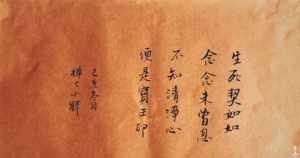 生死契如如
念念未曾息
不知清淨心
須是寶王印
己亥冬月
小